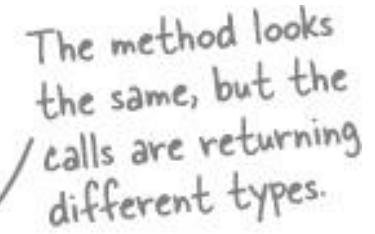 The method looks
the same, but the
calls are returning
different types.